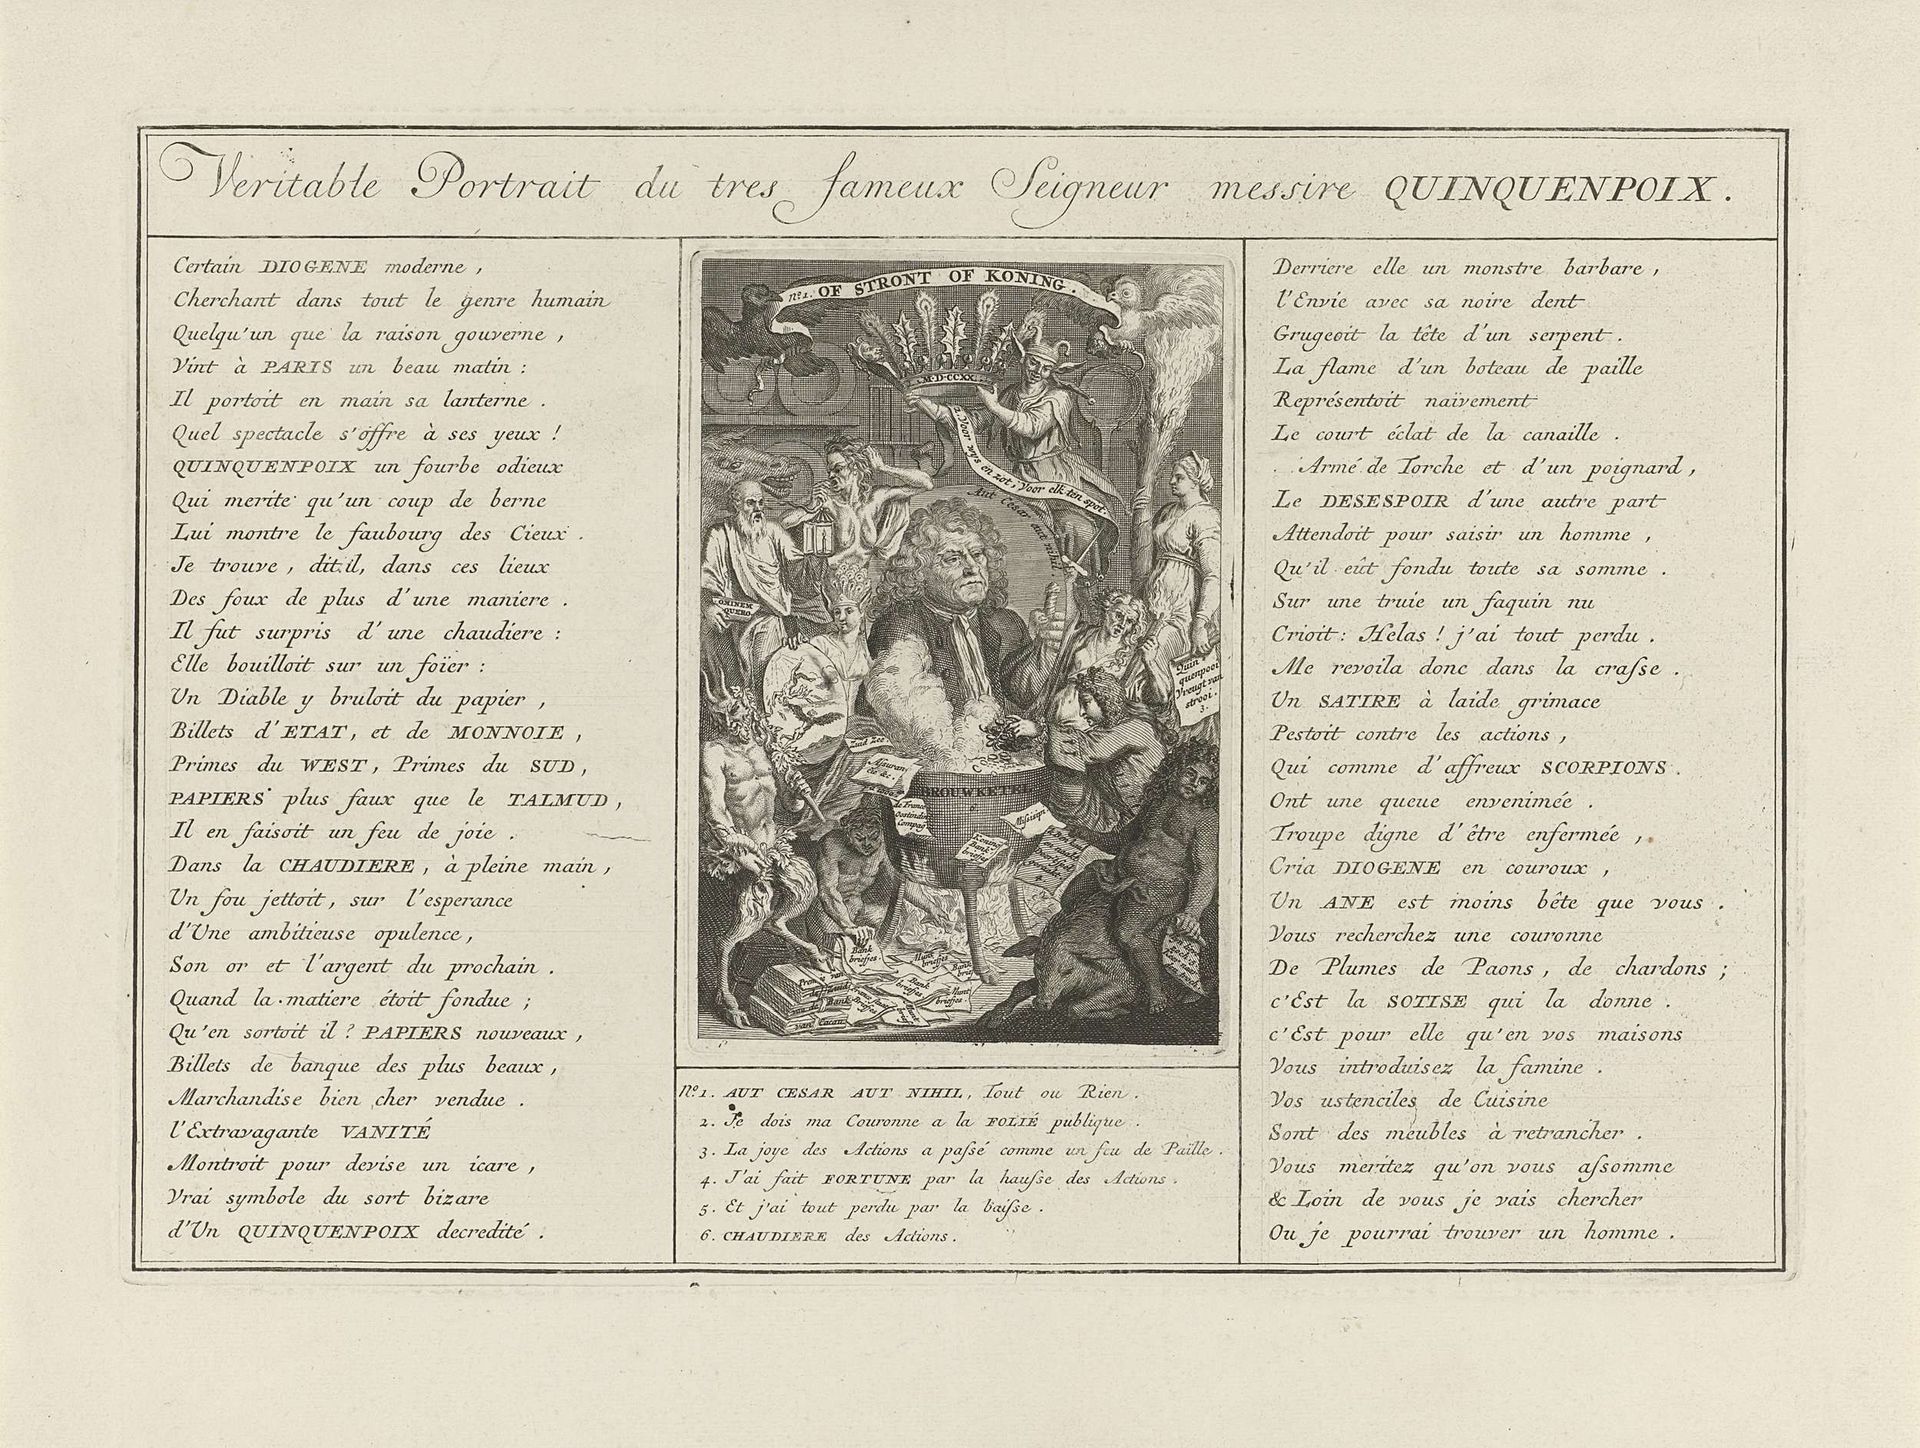 Veritable Portrait du tres fameux Seigneur messire QUINQUENPOIX.
Certain DIOGENE moderne,
Cherchant dans tout le genre humain
Quelqu'un que la raison gouverne,
Vint à PARIS un beau matin:
Il portoit en main sa lanterne.
Quel spectacle s'offre à ses yeux!
QUINQUENPOIX un fourbe odieux
Qui merite qu'un coup de berne
Lui montre le faubourg des Cieux.
Je trouve, dit-il, dans ces lieux
Des foux de plus d'une maniere.
Il fut surpris d'une chaudiere:
Elle bouilloit sur un foïer:
Un Diable y bruloit du papier,
Billets d'ETAT, et de MONNOIE,
Primes du WEST, Primes du SUD,
PAPIERS plus faux que le TALMUD,
Il en faisoit un feu de joie.
Dans la CHAUDIERE, à pleine main,
Un fou jettoit, sur l'esperance
d'Une ambitieuse opulence,
Son or et l'argent du prochain.
Quand la matiere étoit fondue;
Qu'en sortoit il? PAPIERS nouveaux,
Billets de banque des plus beaux,
Marchandise bien cher vendue.
l'Extravagante VANITÉ
Montroit pour devise un icare,
Vrai symbole du sort bizare
d'Un QUINQUENPOIX decredité.
nº1. OF STRONT OF KONING.
M.D.CCXX.
2. Voor wys en zot, Voor elk ten spot.
Aut Cesar aut nihil.
OMINEM QUERO.
Quin
quenpooi
Vreugt van
strooi.
3.
Zuid Zee
Assuran
tie &c.
BROUWKETEL
6.
de France
Oostendse
Compag
Missisipi
Bank
briefjes
Bank
briefjes
Munt
briefjes
van Cacau
nº1. AUT CESAR AUT NIHIL, Tout ou Rien.
2. Je dois ma Couronne a la FOLIÉ publique.
3. La joye des Actions a passé comme un feu de Paille.
4. J'ai fait FORTUNE par la hausse des Actions.
5. Et j'ai tout perdu par la baisse.
6. CHAUDIERE des Actions.
Derriere elle un monstre barbare,
l'Envie avec sa noire dent
Grugeoit la tête d'un serpent.
La flame d'un boteau de paille
Représentoit naïvement
Le court éclat de la canaille.
Armé de Torche et d'un poignard,
Le DESESPOIR d'une autre part
Attendoit pour saisir un homme,
Qu'il eût fondu toute sa somme.
Sur une truie un faquin nu
Crioit: Helas! j'ai tout perdu.
Me revoila donc dans la crasse.
Un SATIRE à laide grimace
Pestoit contre les actions,
Qui comme d'affreux SCORPIONS.
Ont une queue envenimée.
Troupe digne d'être enfermée,
Cria DIOGENE en couroux,
Un ANE est moins bête que vous.
Vous recherchez une couronne
De Plumes de Paons, de chardons;
c'Est la SOTISE qui la donne.
c'Est pour elle qu'en vos maisons
Vous introduisez la famine.
Vos ustenciles de Cuisine
Sont des meubles à retrancher.
Vous meritez qu'on vous assomme
& Loin de vous je vais chercher
Ou je pourrai trouver un homme.